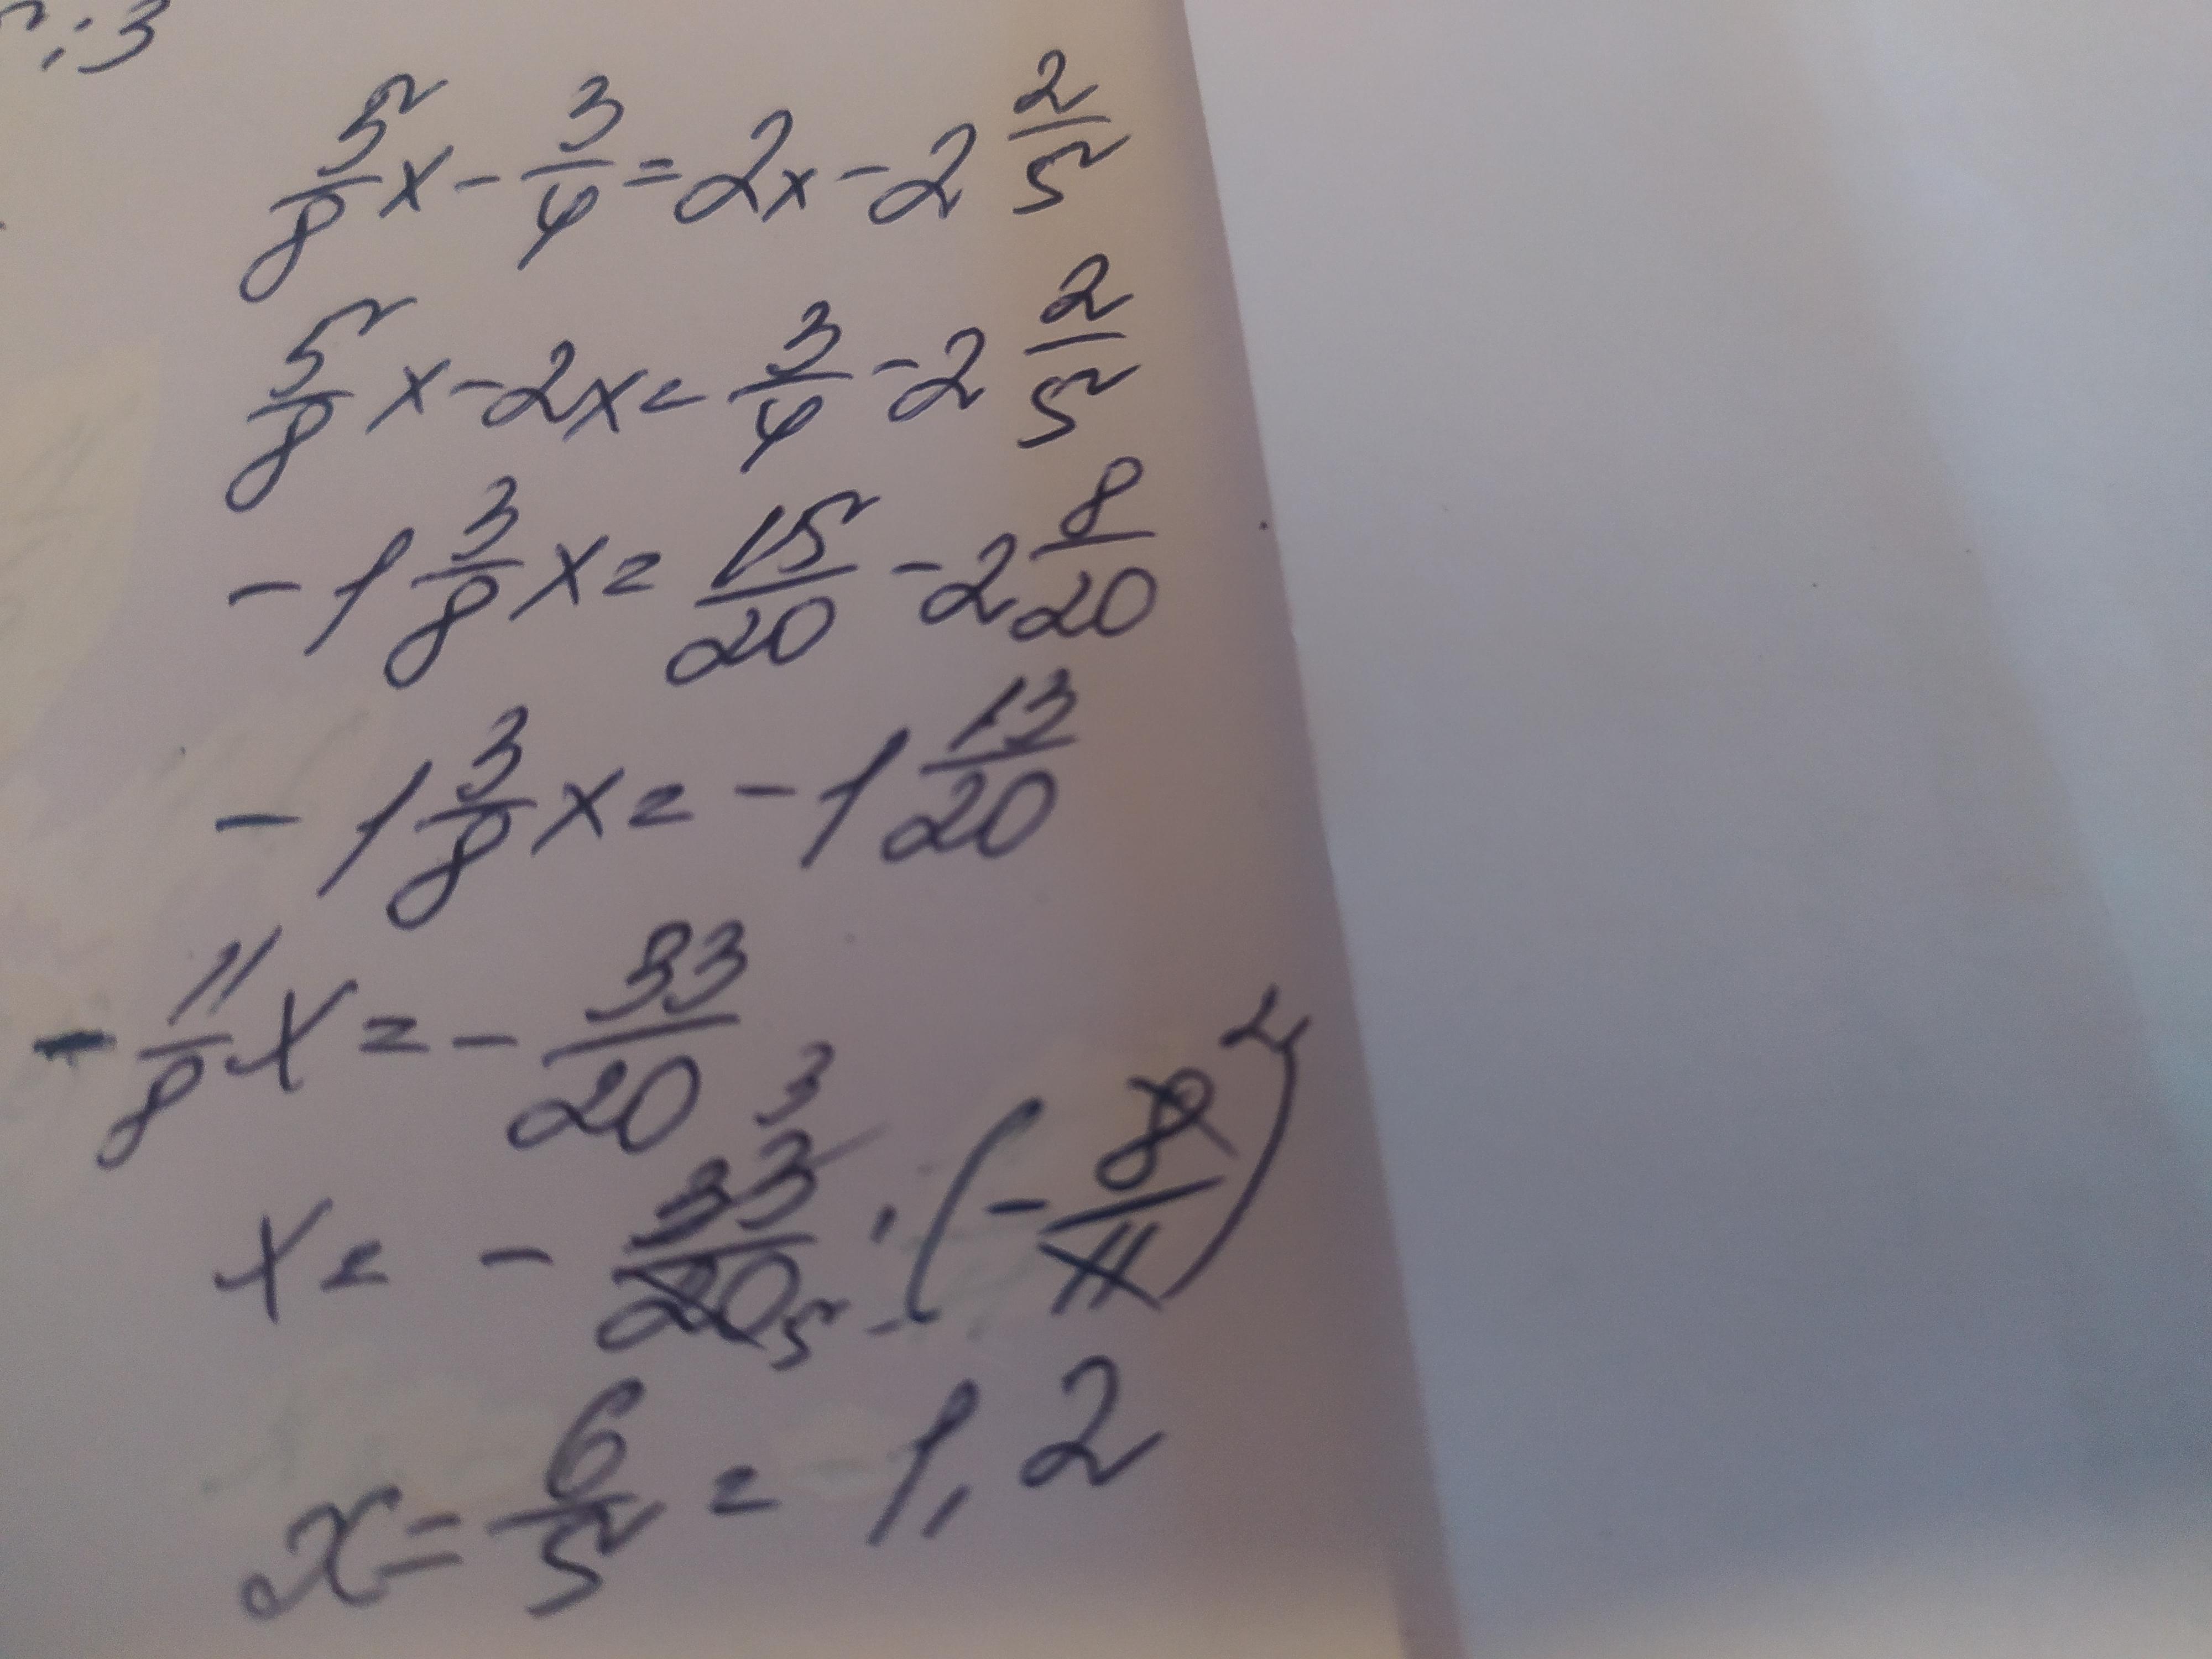 :3
5/8 x - 3/4 = 2x - 2 2/5
5/8 x - 2x = 3/4 - 2 2/5
- 1 3/8 x = 15/20 - 2 8/20
- 1 3/8 x = - 1 13/20
- 11/8 x = - 33/20
x = - 33/20 · (- 8/11) 3 5 2
x = 6/5 = 1,2